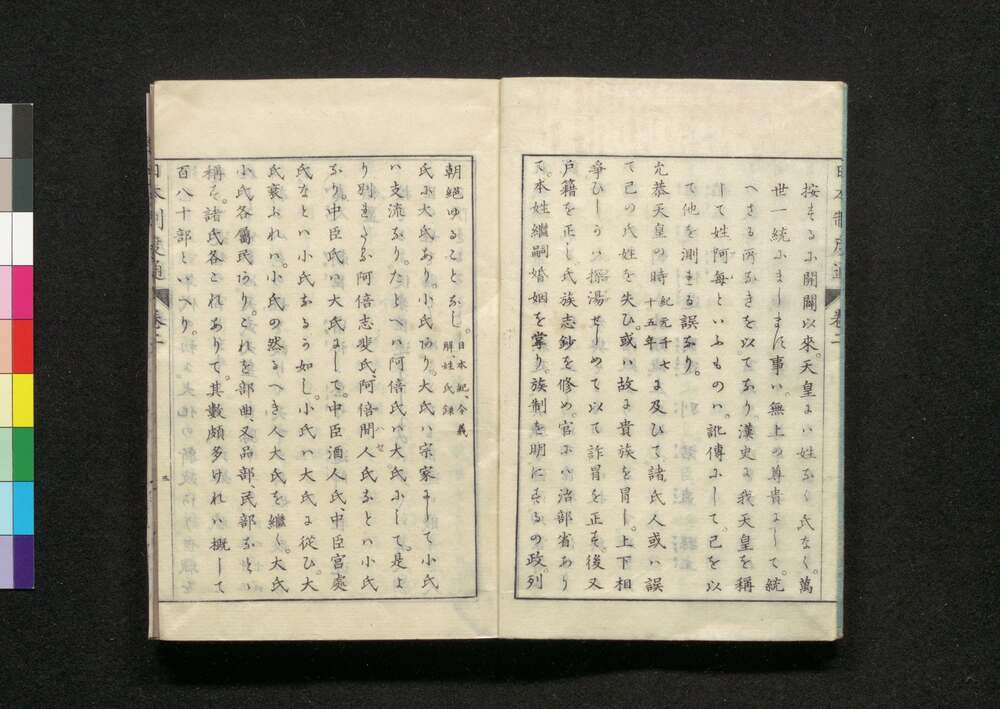 按するに開闢以來。天皇には姓なく氏なく。萬
世一統にまします事は。無上の尊貴にして。統
へさる所なきを以てなり。漢史に我天皇を稱
して姓阿毎といふものは。訛傳にして。己を以
て他を測れる誤なり。
允恭天皇の時紀元千七十五年に及ひて諸氏人或は誤
て己の氏姓を失ひ。或は故に貴族を冒し。上下相
爭ひしかは。探湯せしめて以て詐冒を正す。後又
戸籍を正し。氏族志鈔を修め。官には治部省あり
て。本姓繼嗣婚姻を掌り。族制を明にするの政。列
朝絕ゆることなし。日本紀、令義解、姓氏録
氏に大氏あり。小氏あり。大氏は宗家にして小氏
は支流なり。たとへは阿倍氏は大氏にして。是よ
り別れたる阿倍志斐氏、阿倍間人氏なとは小氏
なり。中臣氏は大氏にして。中臣酒人氏、中臣宮處
氏なとは小氏なるか如し。小氏は大氏に從ひ。大
氏衰ふれは。小氏の然るへき人大氏を繼く。大氏
小氏各屬民あり。これを部曲又品部、民部なとゝ
稱す。諸氏各これありて。其數頗多けれは。概して
百八十部といへり。
日本制度通
卷二
五